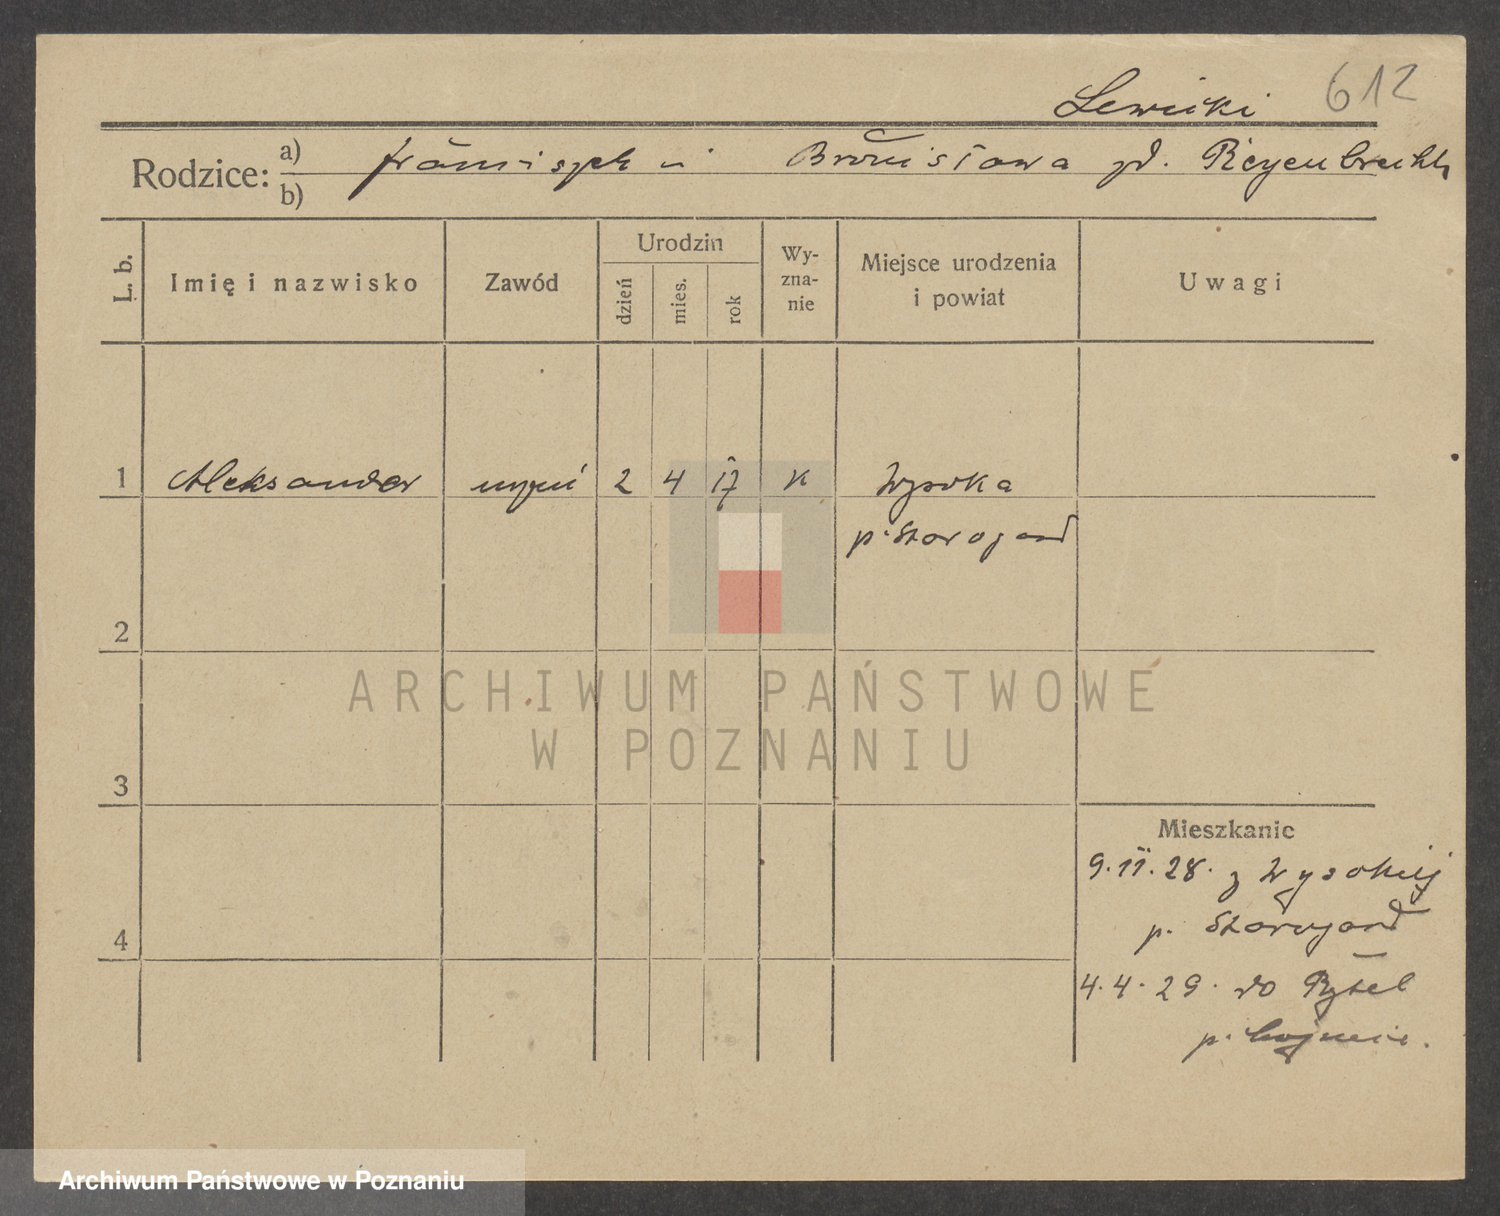 Lewicki 612
Rodzice: a) b) Franciszek i Bronisława zd. Regenbrecht
L. b. Imię i nazwisko Zawód Urodzin dzień mies. rok Wyzna-nie Miejsce urodzenia i powiat Uwagi
1 Aleksander uczeń 2 4 17 k Wysoka
p. Starogard
2
ARCHIWUM PAŃSTWOWE
W POZNANIU
3
Mieszkanie
9.II.28. z Wysokiej
p. Starogard
4
4.4.29. do Rytel
p. Chojnice.
Archiwum Państwowe w Poznaniu